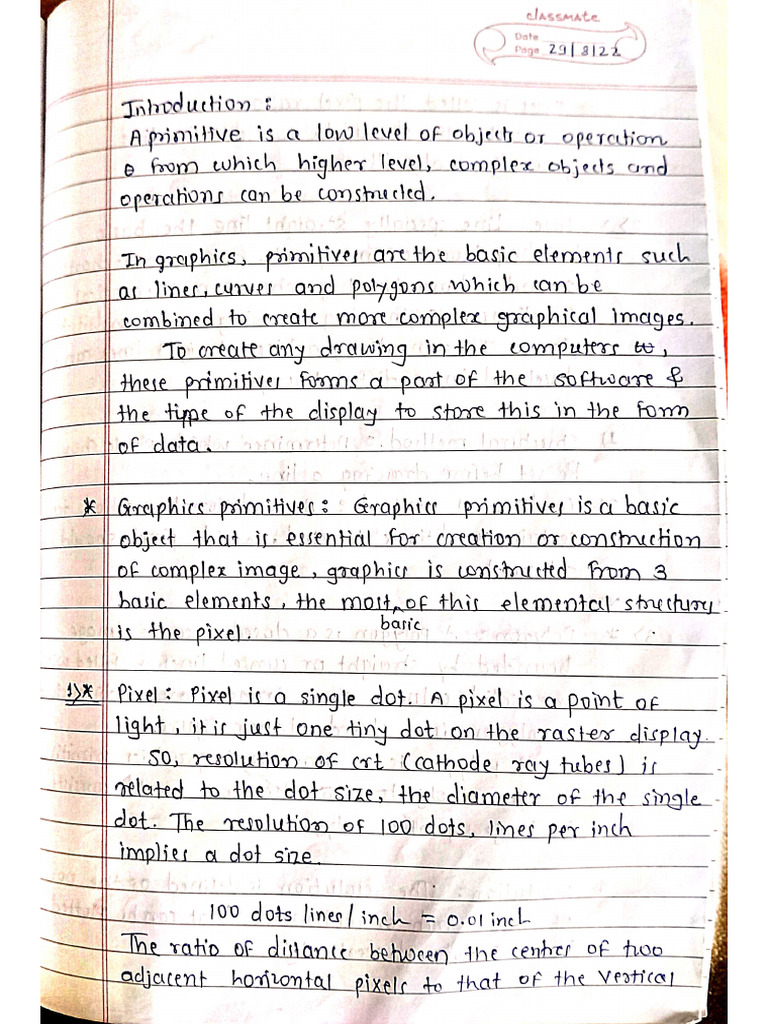 classmate
Date
Page 29/8/22
Introduction :
A primitive is a low level of objects or operation
from which higher level, complex objects and
operations can be constructed.
In graphics, primitives are the basic elements such
as lines, curves and polygons which can be
combined to create more complex graphical images.
To create any drawing in the computers,
these primitives forms a part of the software &
the type of the display to store this in the form
of data.
* Graphics primitives : Graphics primitives is a basic
object that is essential for creation or construction
of complex image, graphics is constructed from 3
basic elements, the most basic of this elemental
is the pixel.
1)* Pixel : Pixel is a single dot. A pixel is a point of
light, it is just one tiny dot on the raster display.
So, resolution of crt (cathode ray tubes) is
related to the dot size, the diameter of the single
dot. The resolution of 100 dots, lines per inch
implies a dot size.
100 dots lines/inch = 0.01 inch
The ratio of distance between the centres of two
adjacent horizontal pixels to that of the vertical